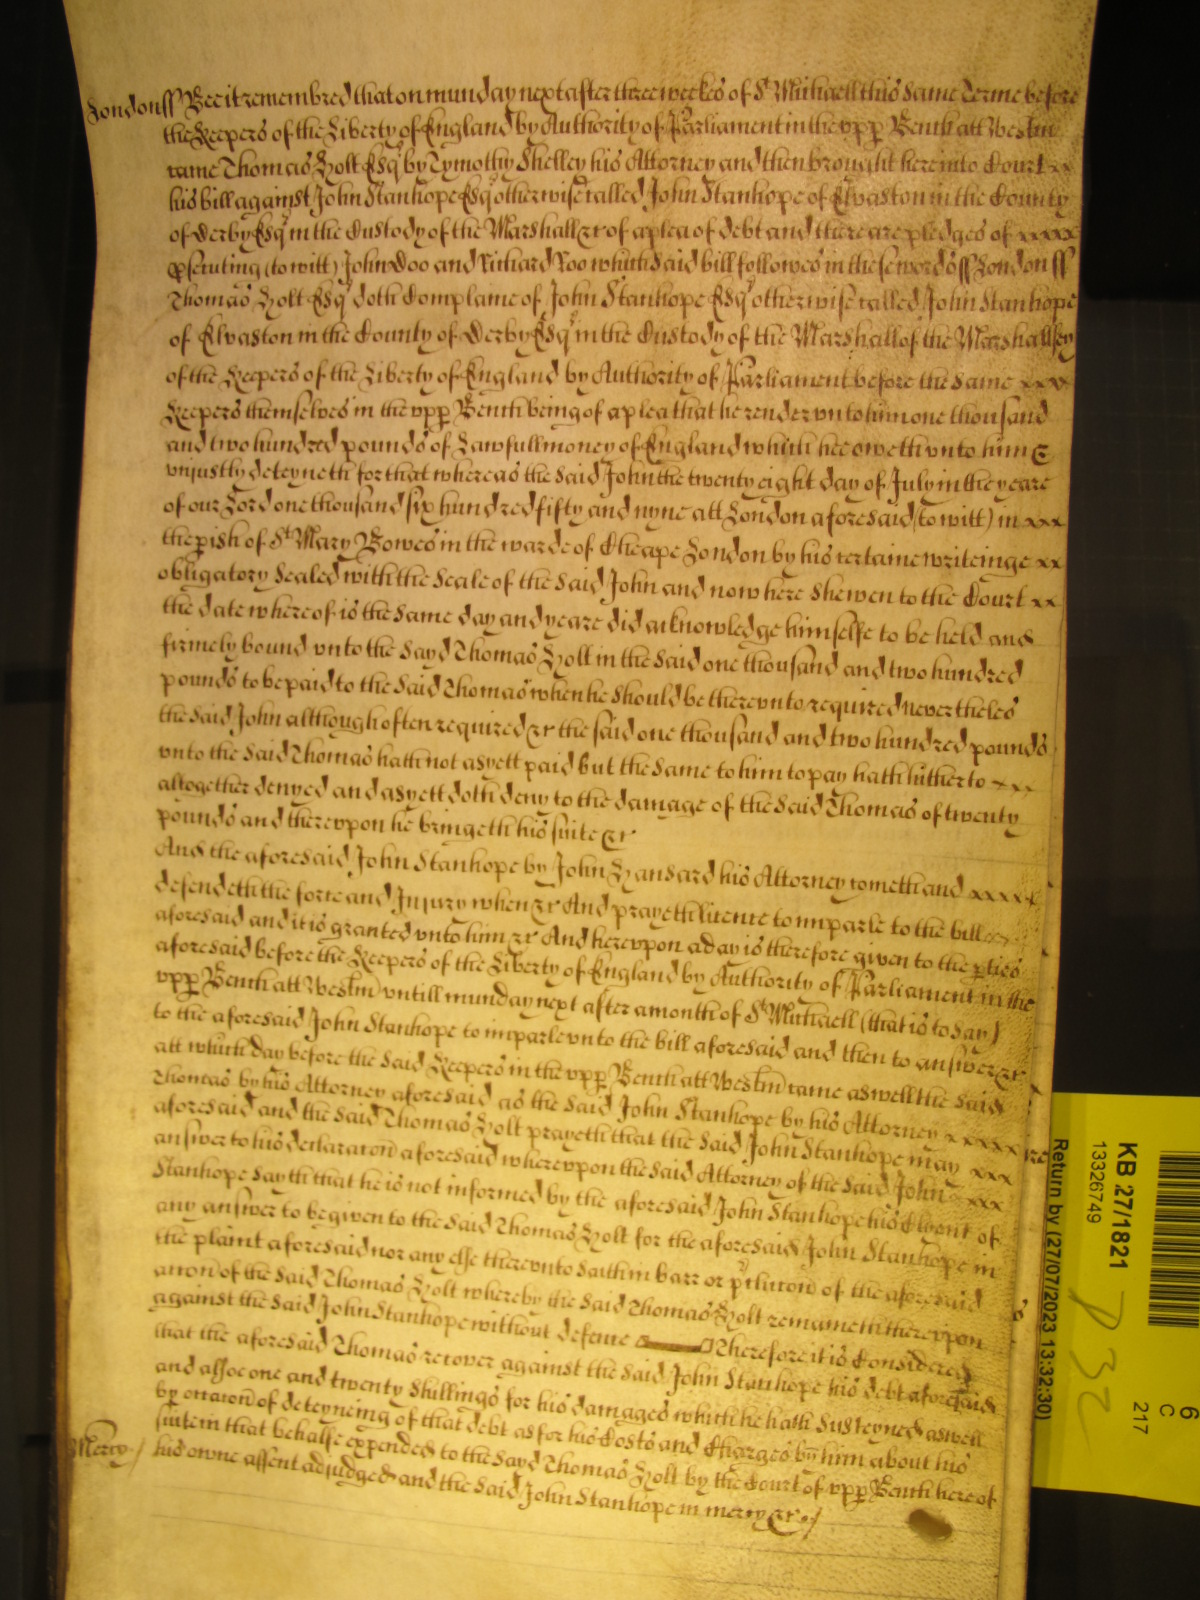 London ss Bee it remembred that on munday next after three weekes of St Michaell this same Terme before
the Keepers of the Liberty of England by Authority of Parliament in the upp Bench att Westm
came Thomas Holt Esqr by Tymothy Shelley his Attorney and then brought here into Court xx
his bill against John Stanhope Esqr otherwise called John Stanhope of Elvaston in the County
of Derby Esqr in the Custody of the Marshall &c of a plea of debt and there are pledges of xxxx
psecuting (to witt) John Doo and Richard Roo which said bill followes in these words ss London ss
Thomas Holt Esqr doth Complaine of John Stanhope Esqr otherwise called John Stanhope
of Elvaston in the County of Derby Esqr in the Custody of the Marshall of the Marshallsey
of the Keepers of the Liberty of England by Authority of Parliament before the same xxx
Keepers themselves in the upp Bench being of a plea that he render unto him one thousand
and two hundred pounds of Lawfull money of England which hee oweth unto him &
uniustly deteyneth for that whereas the said John the twenty eight day of July in the yeare
of our Lord one thousand six hundred fifty and nyne att London aforesaid (to witt) in xxx
the pish of St Mary Bowes in the warde of Cheape London by his certaine writeinge xx
obligatory Sealed with the Seale of the said John and now here shewen to the Court xx
the date whereof is the same day and yeare did acknowledge himselfe to be held and
firmely bound unto the sayd Thomas Holt in the said one thousand and two hundred
pounds to be paid to the said Thomas when he should be thereunto required nevertheles
the said John although often required &c the said one thousand and two hundred pounds
unto the said Thomas hath not as yett paid but the same to him to pay hath hitherto xxx
altogether denyed and as yett doth deny to the damage of the said Thomas of twenty
pounds and thereupon he bringeth his suite &c
And the aforesaid John Stanhope by John Hansard his Attorney cometh and xxxxx
defendeth the force and Injury when &c And prayeth licence to imparle to the bill
aforesaid and it is granted unto him &c And hereupon a day is therefore given to the pties
aforesaid before the Keepers of the Liberty of England by Authority of Parliament in the
upp Bench att Westm untill munday next after a month of St Michaell (that is to say)
to the aforesaid John Stanhope to imparle unto the bill aforesaid and then to answer &c
att which day before the said Keepers in the upp Bench att Westm came aswell the said
Thomas by his Attorney aforesaid as the said John Stanhope by his Attorney xxxxx
aforesaid and the said Thomas Holt prayeth that the said John Stanhope may xxx
answer to his declaracon aforesaid whereupon the said Attorney of the said John xxx
Stanhope sayth that he is not informed by the aforesaid John Stanhope his Clyent of
any answer to be given to the said Thomas Holt for the aforesaid John Stanhope in
the plaint aforesaid nor any else thereunto saith in barr or of the aforesaid
accon of the said Thomas Holt whereby the said Thomas Holt remaineth thereupon
against the said John Stanhope without defence Therefore it is Considered
that the aforesaid Thomas recover against the said John Stanhope his debt aforesaid
and alsoe one and twenty Shillings for his damages which he hath susteyned aswell
by occacon of deteyneing of that debt as for his Costs and Charges by him about his
suite in that behalfe expended to the sayd Thomas Holt by the Court of upp Bench here of
Mercy / his owne assent adiudged and the said John Stanhope in mercy &c /
KB 27/1821
13326749
Return by (27/07/2023 13:32:30)
6
C
217
P 32